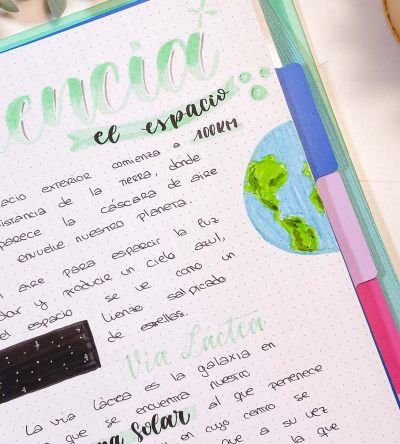 encia
el espacio
acio exterior comienza a 100KM
istancia de la tierra, donde
parece la cáscara de aire
envuelve nuestro planeta.
aire para esparcir la luz
olar y producir un cielo azul,
el espacio se ve como un
lienzo salpicado
de estrellas.
Vía Láctea
La vía Láctea es la galaxia en
que se encuentra nuestro
ma solar al que pertenece
en cuyo centro se
que a su vez
la que